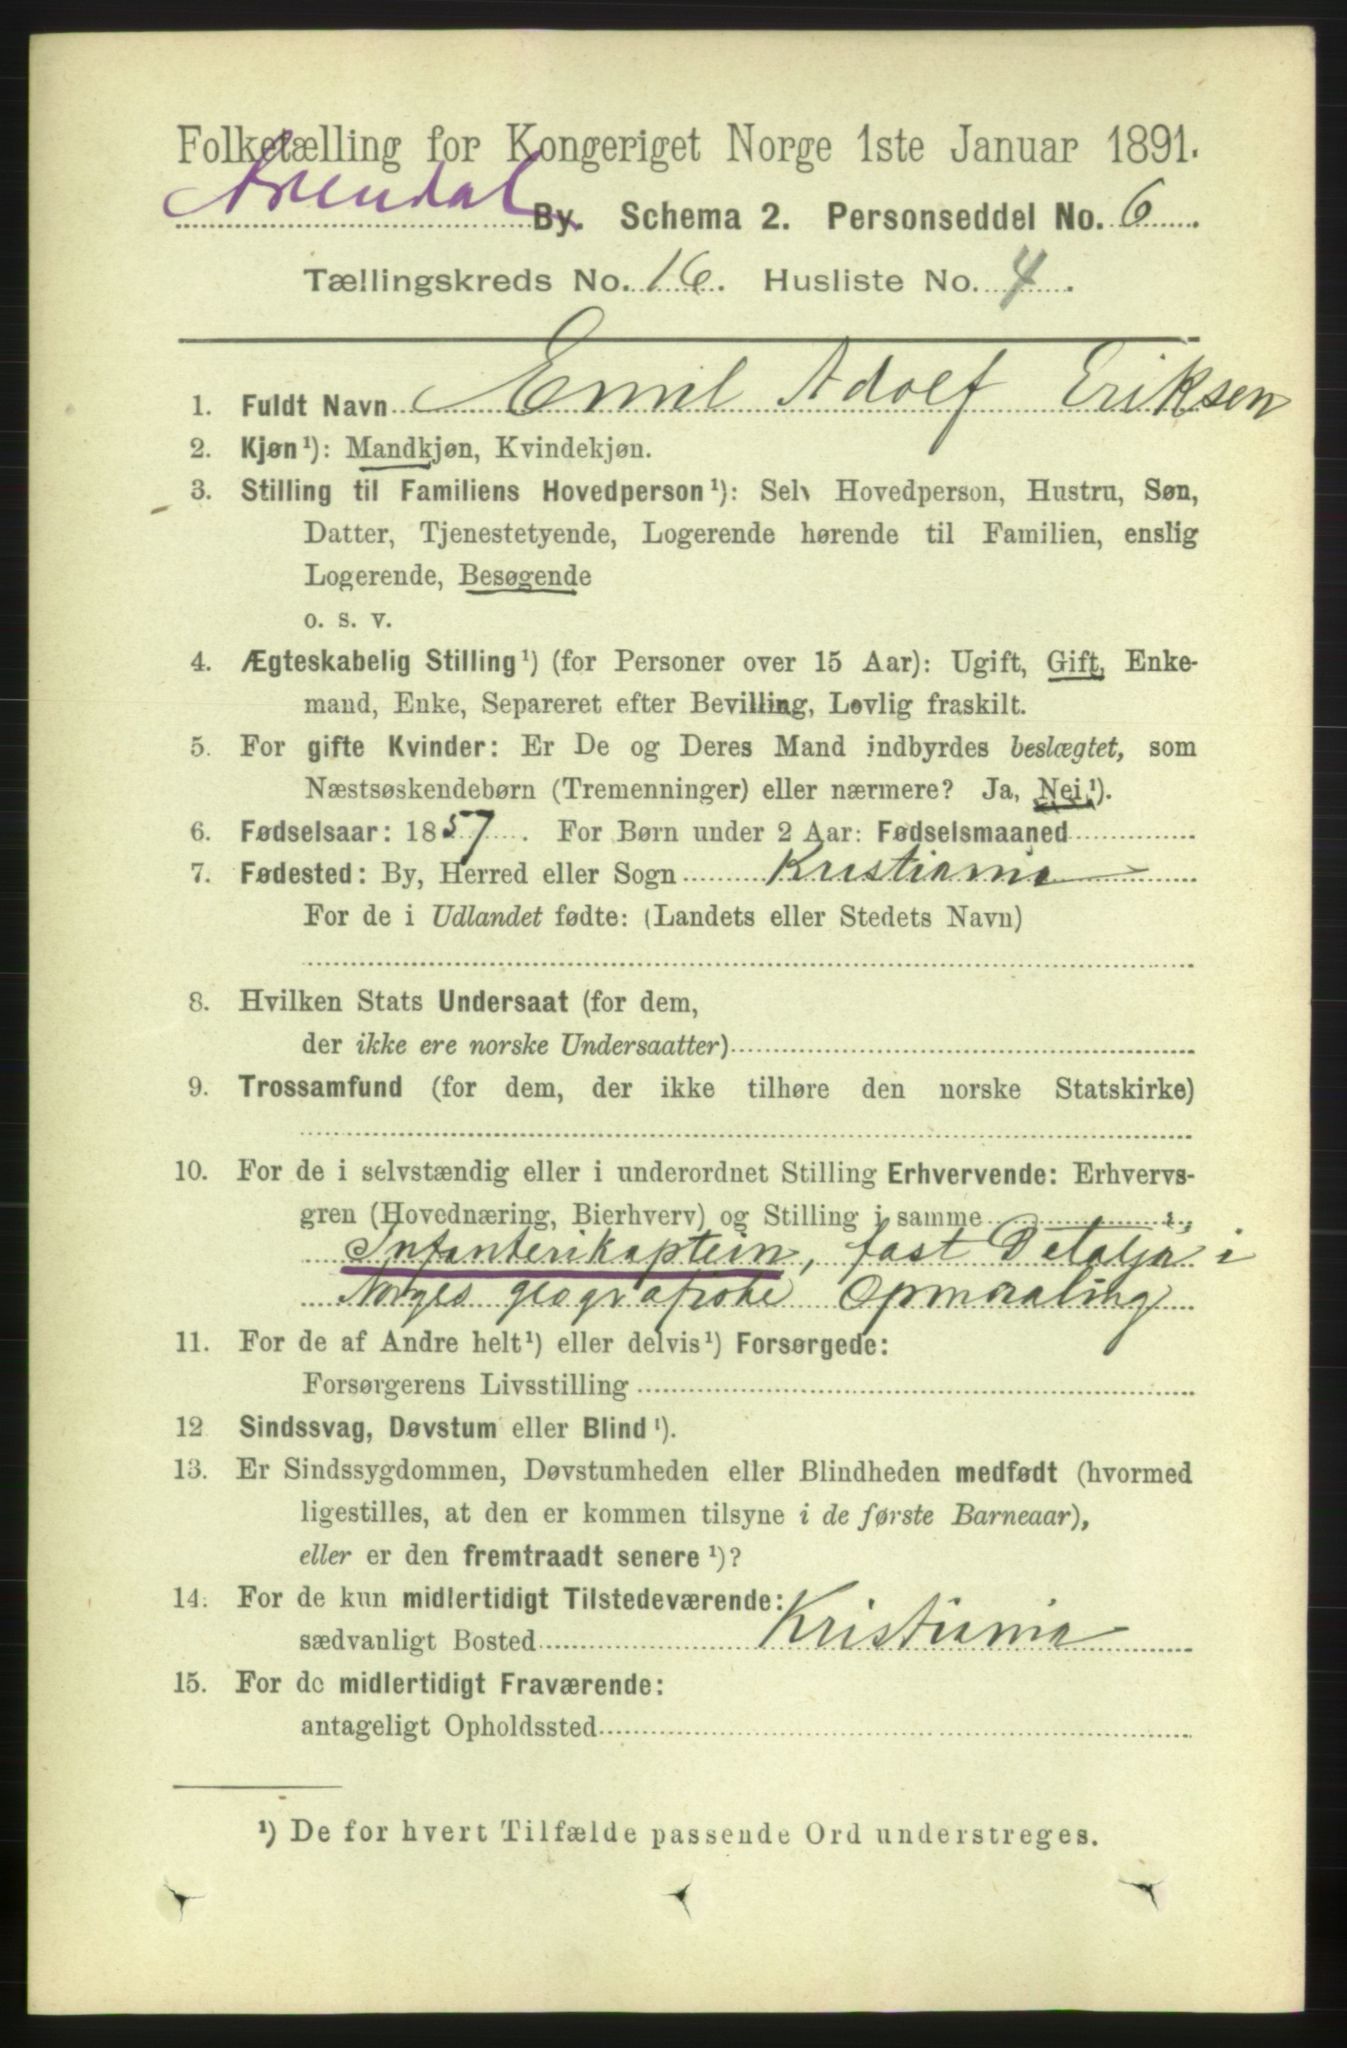 Folketælling for Kongeriget Norge 1ste Januar 1891.
Arendal By. Schema 2. Personseddel No. 6
Tællingskreds No. 16. Husliste No. 4.
1. Fuldt Navn Emil Adolf Eriksen
2. Kjøn¹): Mandkjøn, Kvindekjøn.
3. Stilling til Familiens Hovedperson¹): Selv Hovedperson, Hustru, Søn,
Datter, Tjenestetyende, Logerende hørende til Familien, enslig
Logerende, Besøgende
o. s. v.
4. Ægteskabelig Stilling¹) (for Personer over 15 Aar): Ugift, Gift, Enke-
mand, Enke, Separeret efter Bevilling, Lovlig fraskilt.
5. For gifte Kvinder: Er De og Deres Mand indbyrdes beslægtet, som
Næstsøskendebørn (Tremenninger) eller nærmere? Ja, Nei¹).
6. Fødselsaar: 1857. For Børn under 2 Aar: Fødselsmaaned
7. Fødested: By, Herred eller Sogn Kristiania
For de i Udlandet fødte: (Landets eller Stedets Navn)
8. Hvilken Stats Undersaat (for dem,
der ikke ere norske Undersaatter)
9. Trossamfund (for dem, der ikke tilhøre den norske Statskirke)
10. For de i selvstændig eller i underordnet Stilling Erhvervende: Erhvervs-
gren (Hovednæring, Bierhverv) og Stilling i samme
Infanterikaptein, fast Detaljør i
Norges geografiske Opmaaling
11. For de af Andre helt¹) eller delvis¹) Forsørgede:
Forsørgerens Livsstilling
12 Sindssvag, Døvstum eller Blind¹).
13. Er Sindssygdommen, Døvstumheden eller Blindheden medfødt (hvormed
ligestilles, at den er kommen tilsyne i de første Barneaar),
eller er den fremtraadt senere¹)?
14. For de kun midlertidigt Tilstedeværende:
sædvanligt Bosted Kristiania
15. For de midlertidigt Fraværende:
antageligt Opholdssted
¹) De for hvert Tilfælde passende Ord understreges.